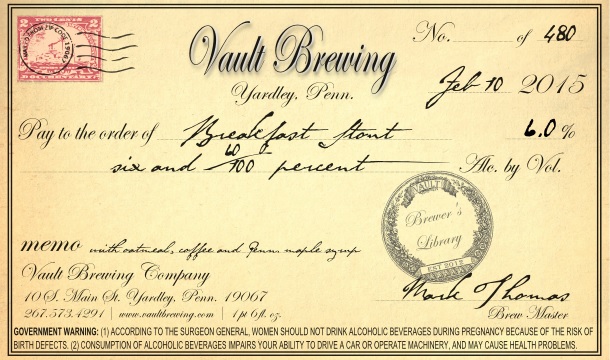 2 TWO CENTS 2
DOCUMENTARY
MAILED FROM ZIP CODE 19067
Vault Brewing
Yardley, Penn.
No. of 480
Feb 10 2015
Pay to the order of Breakfast Stout 6.0 %
six and 00/100 percent Alc. by Vol.
VAULT
Brewer's
Library
EST 2012
memo with oatmeal, coffee and Penn. maple syrup
Vault Brewing Company
10 S. Main St. Yardley, Penn. 19067
267.573.4291 | www.vaultbrewing.com | 1 pt 6 fl. oz.
Mark Thomas
Brew Master
GOVERNMENT WARNING: (1) ACCORDING TO THE SURGEON GENERAL, WOMEN SHOULD NOT DRINK ALCOHOLIC BEVERAGES DURING PREGNANCY BECAUSE OF THE RISK OF
BIRTH DEFECTS. (2) CONSUMPTION OF ALCOHOLIC BEVERAGES IMPAIRS YOUR ABILITY TO DRIVE A CAR OR OPERATE MACHINERY, AND MAY CAUSE HEALTH PROBLEMS.